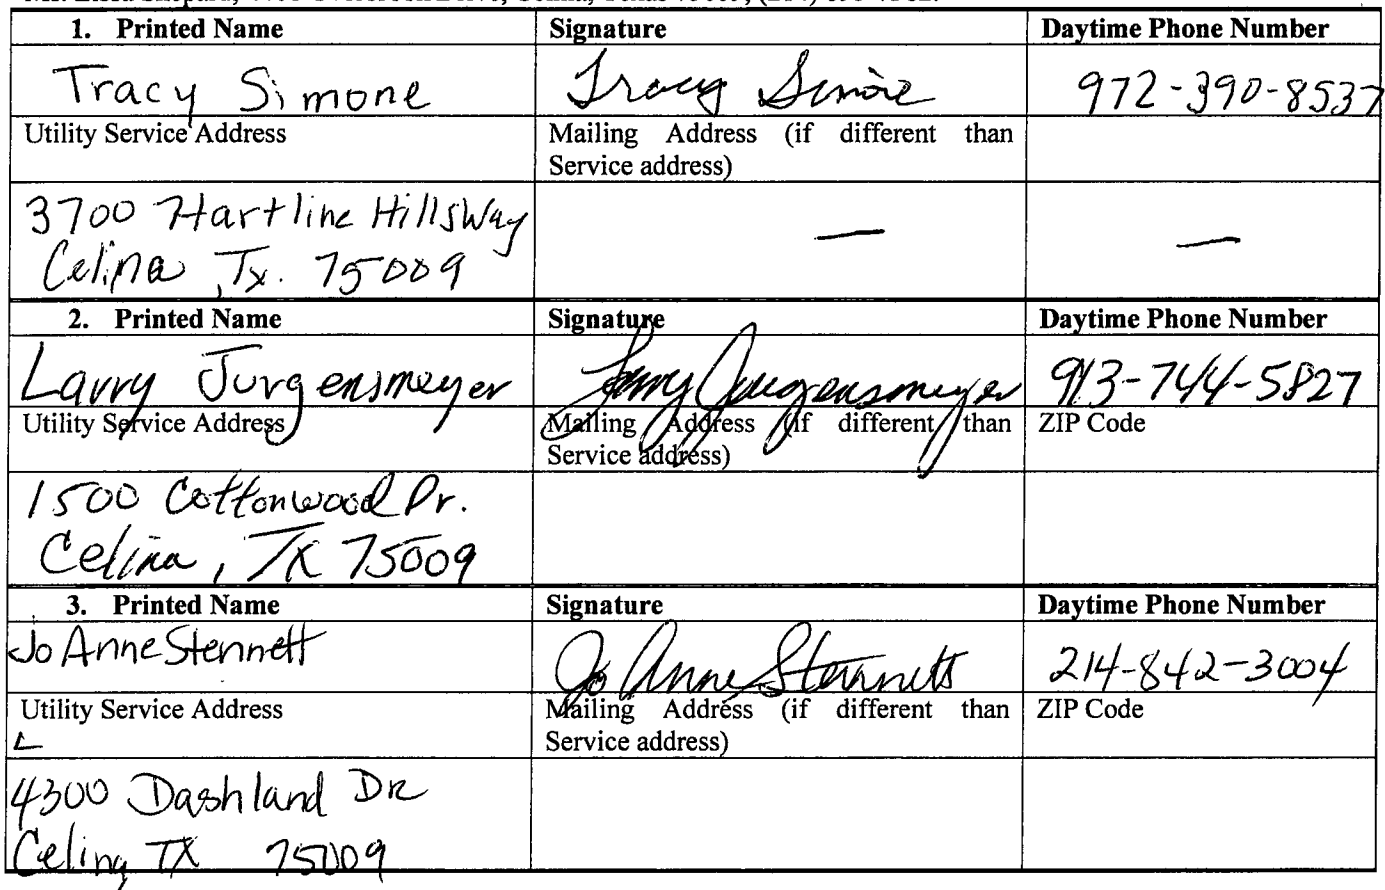 1. Printed Name Signature Daytime Phone Number
Tracy Simone Tracy Simone 972-390-8537
Utility Service Address Mailing Address (if different than
Service address)
3700 Hartline Hills Way
Celina, Tx. 75009 — —
2. Printed Name Signature Daytime Phone Number
Larry Jurgensmeyer Larry Jurgensmeyer 913-744-5827
Utility Service Address Mailing Address (if different than ZIP Code
Service address)
1500 Cottonwood Dr.
Celina, TX 75009
3. Printed Name Signature Daytime Phone Number
Jo Anne Stennett Jo Anne Stennett 214-842-3004
Utility Service Address Mailing Address (if different than ZIP Code
Service address)
4300 Dashland DR
Celina, TX 75009